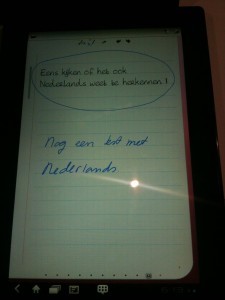 Eens kijken of het ook
Nederlands weet te herkennen!
Nog een test met
Nederlands